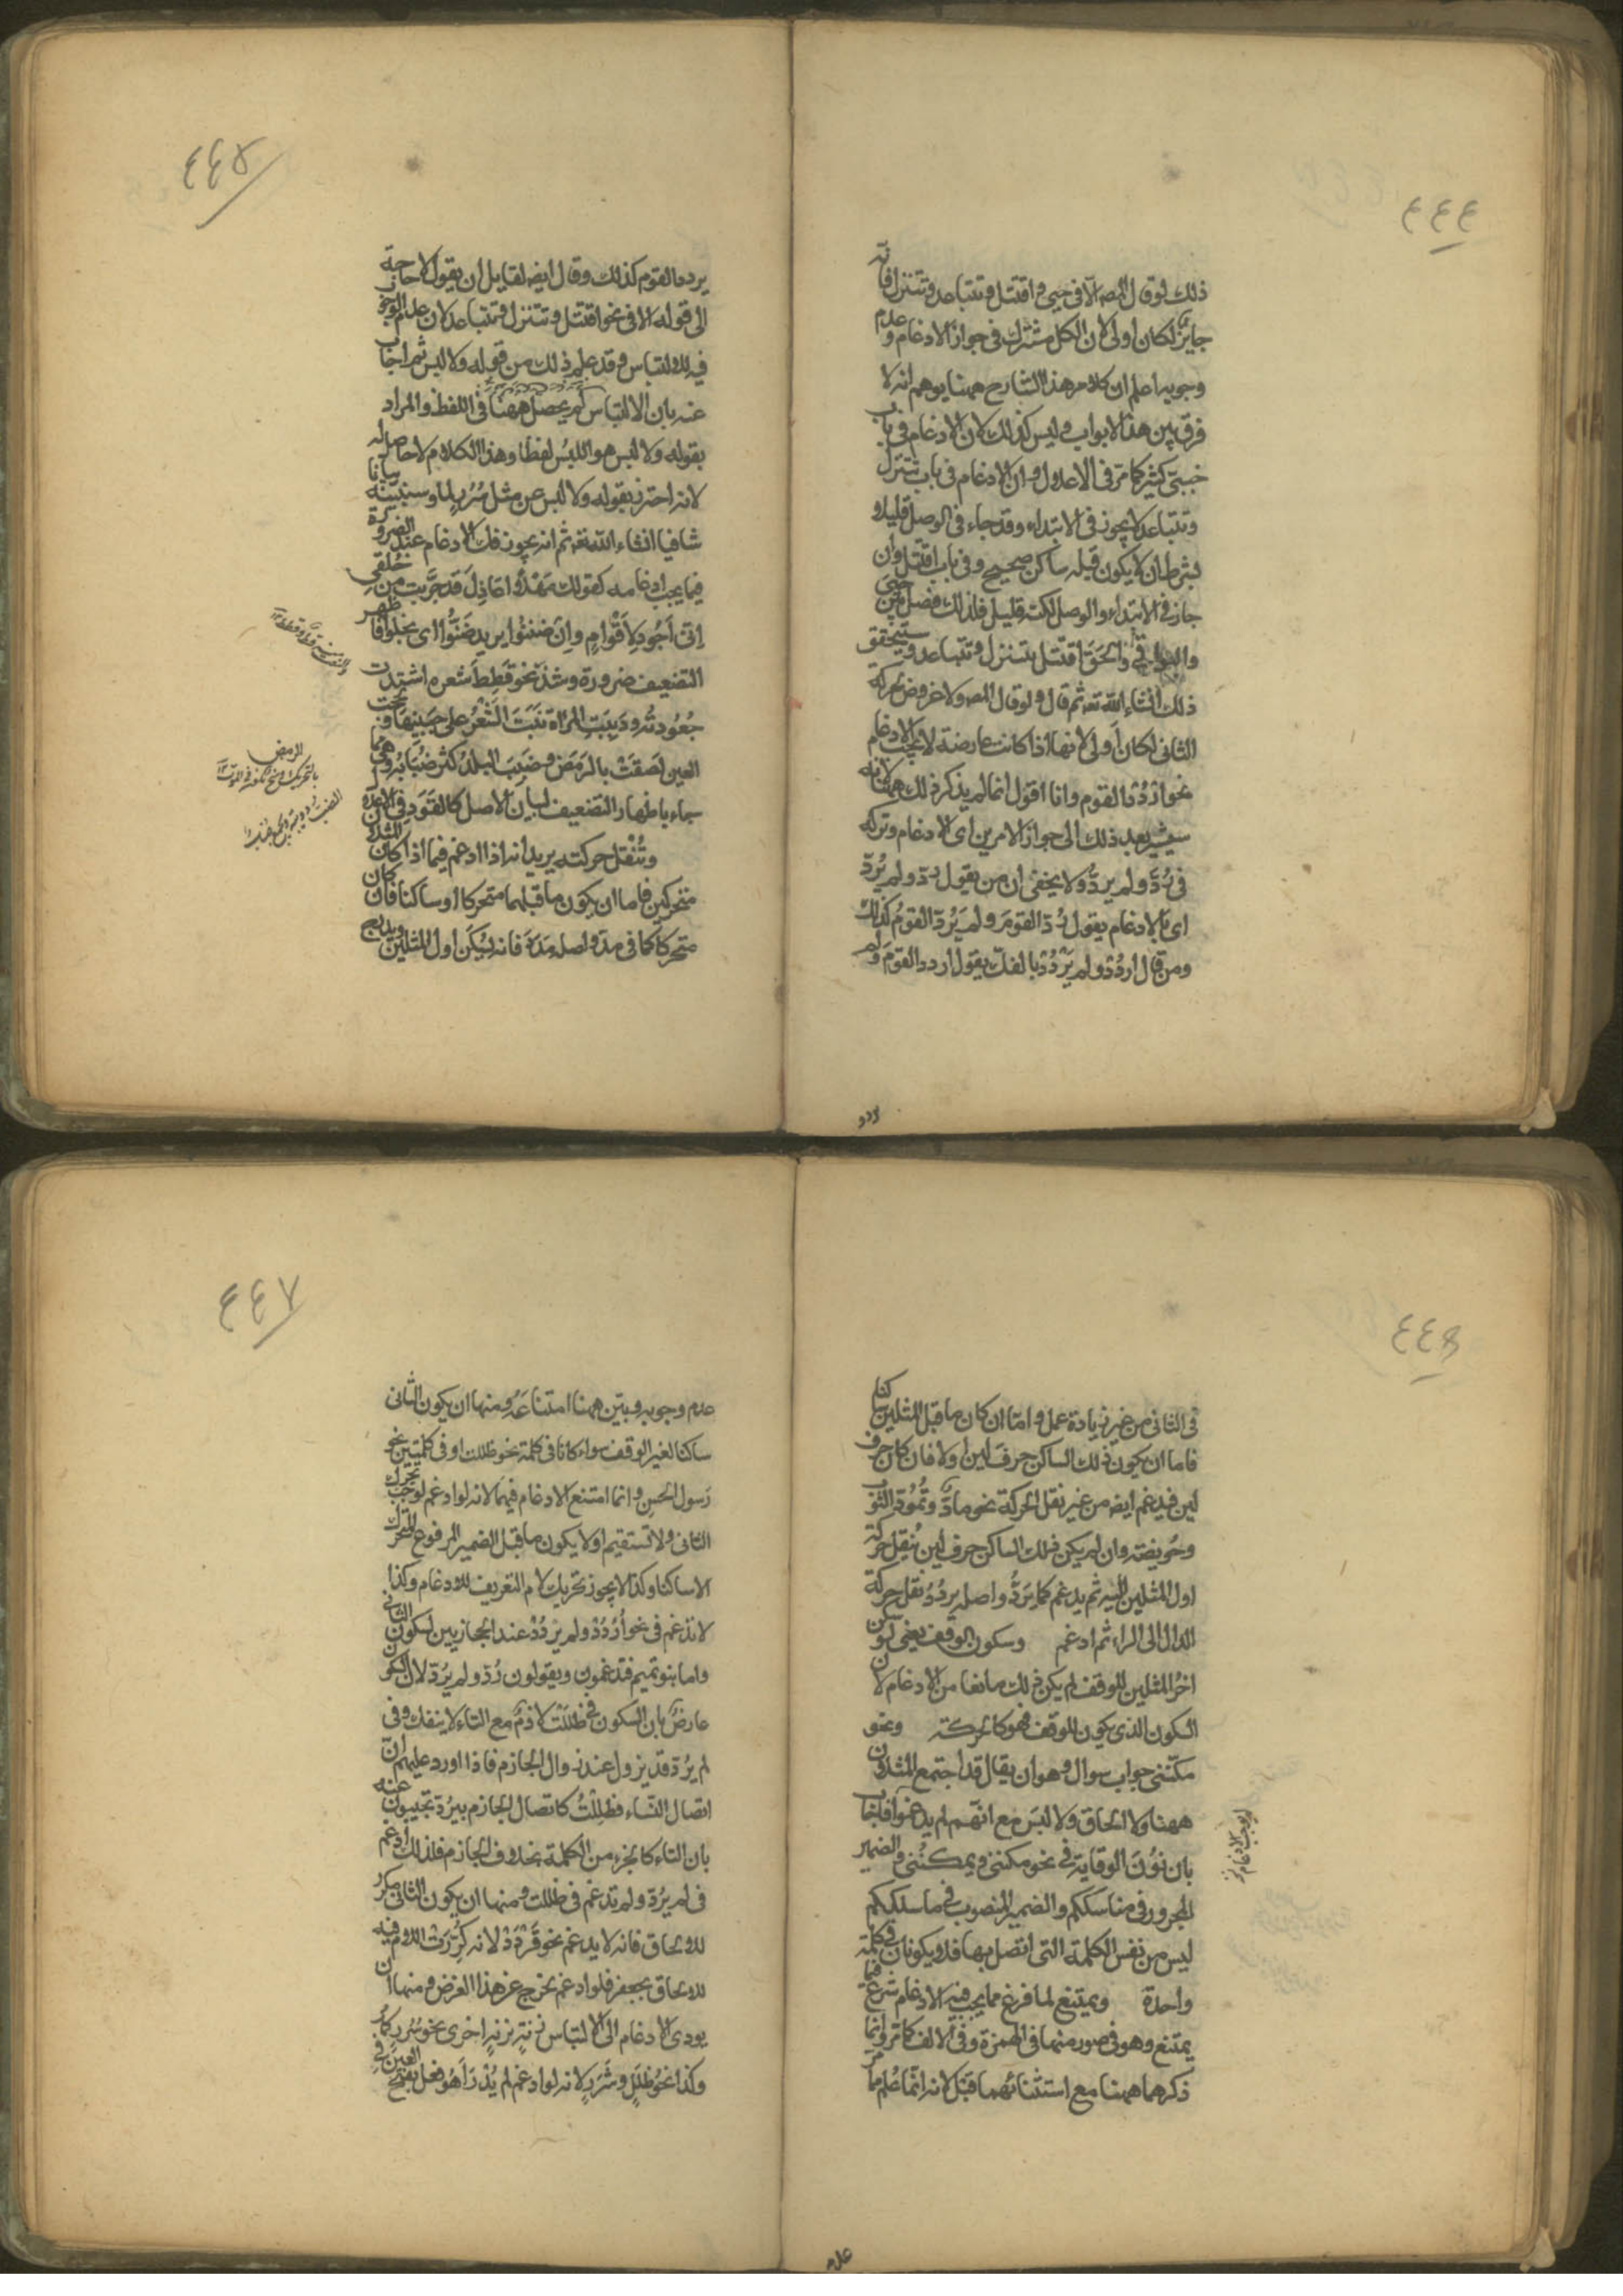 ٤٤٤
ذلك لو قال المصه الا فى حيى و اقتتل و تتباعد و تتنزل فانه
جايز لكان اولى لان الكل مشترك فى جواز الادغام و عدم
وجوبه اعلم ان كلام هذا الشارح ههنا يوهم انه لا
فرق بين هذا الابواب و ليس كذلك لان الادغام فى باب
حيى كثير كما مر فى الاعلال و ان الادغام فى باب تتنزل
و تتباعد لا يجوز فى الابتداء و قد جاء فى الوصل قليلا و
بشرط ان لا يكون قبله ساكن صحيح و فى باب اقتتل و ان
جاز فى الابتداء و الوصل لكنه قليل فلذلك فصل بين حيى
و البواقى و الحق اقتتل بتتنزل و تتباعد و ستحقق
ذلك انشاء الله تعه ثم قال و لو قال المصه و لا عروض تحركه
الثانى لكان اولى لانها اذا كانت عارضة لا يجب الادغام
نحو اردد القوم و انا اقول انما لم يذكر ذلك ههنا لانه
سيشير بعد ذلك الى جواز الامرين اى الادغام و تركه
فى رُدَّ و لم يردُّ و لا يخفى ان من يقول ردّ و لم يُردّ
اى بالادغام يقول رُدّ القومَ و لم يَرُدّ القومُ كذلك
و من قال اردُدْ و لم يَرْدُدْ بالفك يقول اردد القومَ و لم
يردد
٤٤٥
يردد القوم كذلك و قال ايضه لقايل ان يقول لا حاجة
الى قوله الا فى نحو اقتتل و تتنزل و تتباعد لان عدم الوجوب
فيه للالتباس و قد علم ذلك من قوله و لا لبس ثم اجاب
عنه بان الالتباس لم يحصل ههنا فى اللفظ و المراد
بقوله و لا لبس هو اللبس لفظا و هذا الكلام لا حاصل له
لانه احترز بقوله و لا لبس عن مثل سُرُرٍ لما سنبينه بيانا
شافيا انشاء الله تعه ثم انه يجوز فك الادغام عند الضرورة
فيما يجب ادغامه كقولك مَهْلًا اعاذِلَ قَد جَرَّبتِ من خُلُقى
اِنّى اَجُودُ لِاَقْوامٍ و اِنْ ضَنِنُوا يريد ضَنُّوا اى بخلوا فاظهر
التضعيف ضرورة و شذ نحو قَطِطَ شعره اشتدت
جُعُودتُه و دَبِبَتِ المرأة نَبَتَ الشَّعْرُ على جَبِينِها و لَحِحَت
العين لَصقَتْ بالرَمَصَ و ضَبِبَ البلدُ كثر ضِبابُه و هى مما
جاء باظهار التضعيف لبيان الاصل كالقَوَد فى الاعلال
و تُنْقل حركته يريد انه اذا ادغم فيما اذا كان المثلان
متحركين فاما ان يكون ما قبلهما متحركا او ساكنا فان كان
متحركا كما فى مدّ و اصله مَدَدَ فانه يُسكَن اول المثلين و يدرج
الرمص
٤٤٦
فى الثانى من غير زيادة عمل و امّا ان كان ما قبل المثلين ساكنا
فاما ان يكون ذلك الساكن حرفَ لين او لا فان كان حرف
لين فيدغم ايضه من غير نقل الحركة نحو مادَّ و تُمُودَّ الثوب
و خُويصّة و ان لم يكن ذلك الساكن حرفَ لين نُقِل حركة
اول المثلين اليه ثم يدغم كما يَرُدُّ و اصله يردُدُ نقل حركة
الدال الى الراء ثم ادغم و سكون الوقف يعنى لو سكن
اخرُ المثلين للوقف لم يكن ذلك مانعا من الادغام لان
السكون الذى يكون للوقف فهو كالحركة و نحو
مكّننى جواب سوال و هو ان يقال قد اجتمع المثلان
ههنا و لا الحاق و لا لبس مع انّهم لم يدغموا فاجاب
بان نُونَ الوقاية فى نحو مكننى و يمكنُنى و الضمير
المجرور فى مناسككم و الضمير المنصوب فى ما سلككم
ليس من نفس الكلمة التى اتصل بها فلا يكونان فى كلمة
واحدة و يمتنع لما فرغ مما يجب فيه الادغام شرع فيما
يمتنع و هو فى صور منها فى الهمزة و فى الالف كما مر و انما
ذكرهما ههنا مع استثنائهما قبل لانه انما عُلم مما مرّ
عدم
٤٤٧
عدم وجوبه و بيّن ههنا امتناعَه و منها ان يكون الثانى
ساكنا لغير الوقف سواء كانا فى كلمة نحو ظللت او فى كلمتين نحو
رَسول الحسن و انما امتنع الادغام فيهما لانه لو ادغم لوجب تحرك
الثانى و لا تستقيم اولا يكون ما قبل الضمير المرفوع المتحرك
الا ساكنا و كذا لا يجوز تحريك لام التعريف للادغام و كذا
لا تدغم فى نحو اُردُدْ و لم يَردُدْ عند الحجازيين لسكون الثانى
و اما بنو تميم فتدغمون و يقولون رُدّ و لم يرُدّ لان السكون
عارض بان السكون فى ظللت لازم مع التاء لا ينفك و فى
لم يرُدّ قد يزول عند زوال الجازم فاذا اورد عليهم انّ
اتصال التاء فظللتُ كاتصال الجازم بيرُدّ تجيبون عنه
بان التاء كالجزء من الكلمة بخلاف الجازم فلذلك ادغم
فى لم يرُدّ و لم تدغم فى ظللت و منها ان يكون الثانى مكرّر
للالحاق فانه لا يدغم نحو قَرْدَدْ لانه كُرِّرَت اللام فيه
للالحاق بجعفر فلو ادغم لخرج عن هذا الغرض و منها ان
يودى الادغام الى الالتباس زنةٍ بزنةٍ اخرى نحو سُرُرٍ كما مرّ
و كذا نحو طَلَلٍ و شَرَرٍ لانه لو ادغم لم يُدْرَ أهو فعل بفتح العين فى